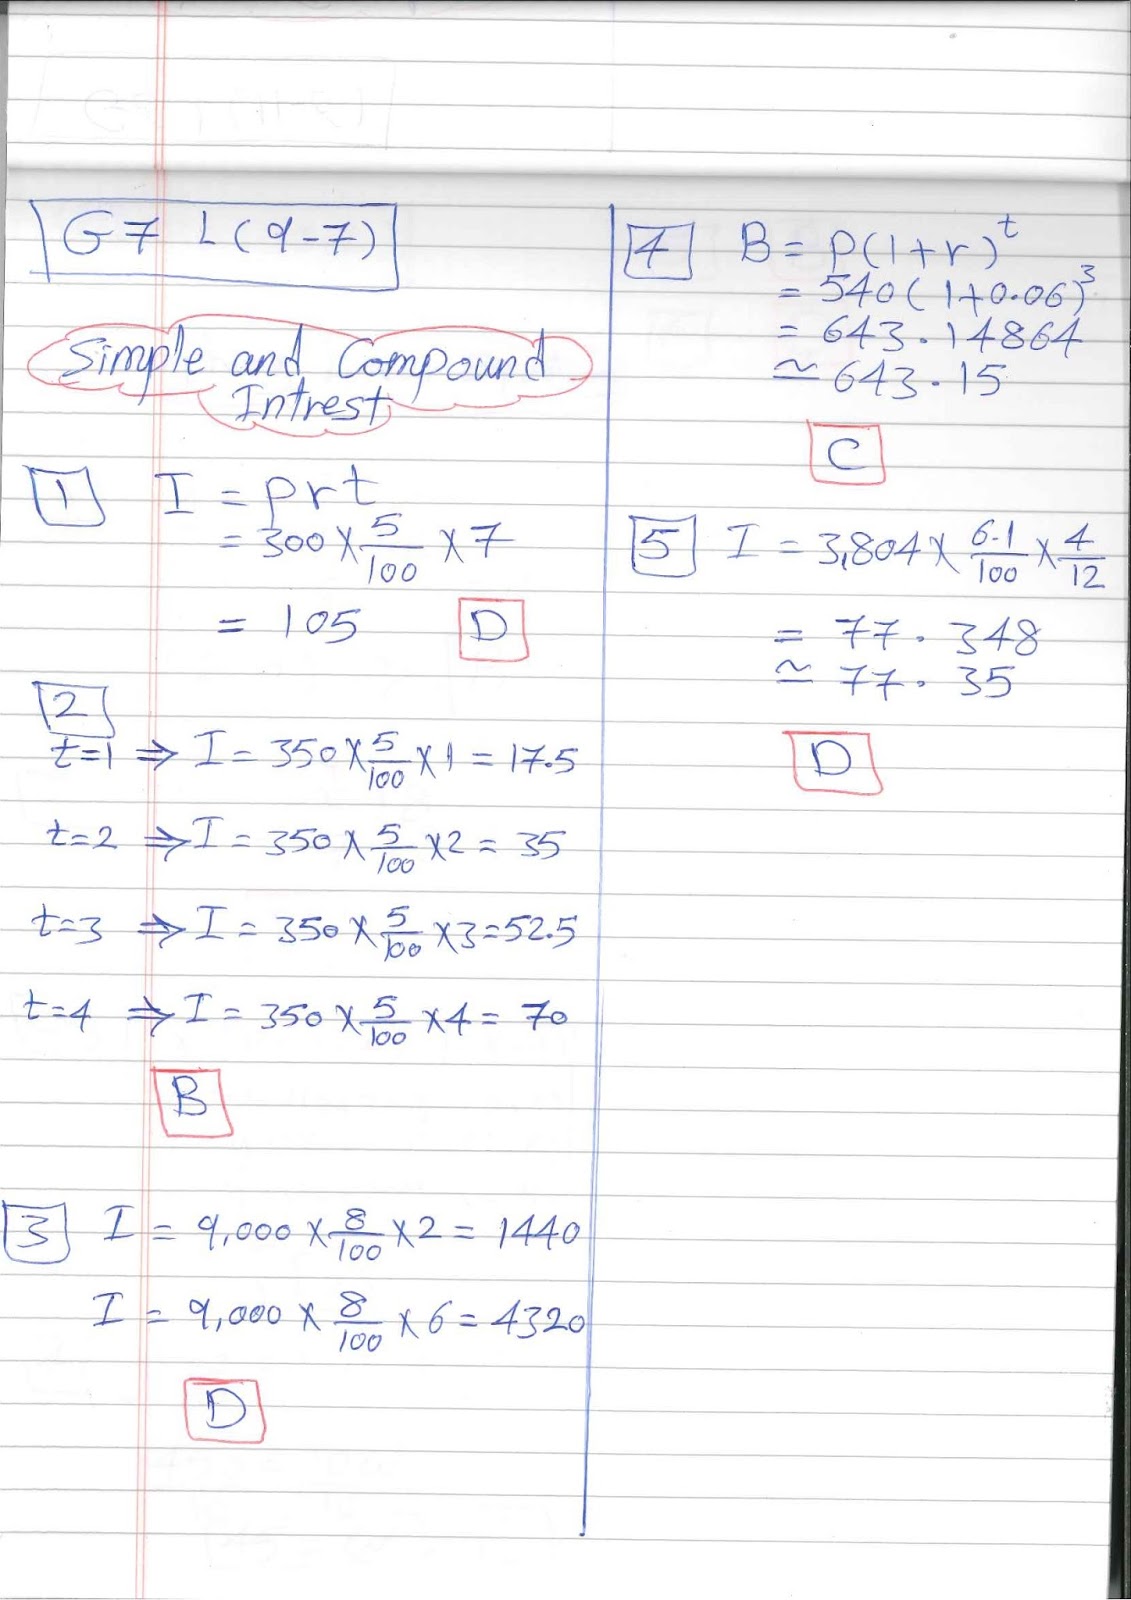 G7 L(9-7)
Simple and Compound
Intrest
1 I = prt
= 300 × 5/100 × 7
= 105 D
2
t=1 ⇒ I = 350 × 5/100 × 1 = 17.5
t=2 ⇒ I = 350 × 5/100 × 2 = 35
t=3 ⇒ I = 350 × 5/100 × 3 = 52.5
t=4 ⇒ I = 350 × 5/100 × 4 = 70
B
3 I = 9,000 × 8/100 × 2 = 1440
I = 9,000 × 8/100 × 6 = 4320
D
4 B = P(1+r)^t
= 540(1+0.06)^3
= 643.14864
≃ 643.15
C
5 I = 3,804 × 6.1/100 × 4/12
= 77.348
≃ 77.35
D